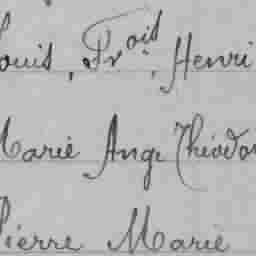 Louis, Fr.ois, Henri
Marie Ange Théodo
Pierre Marie